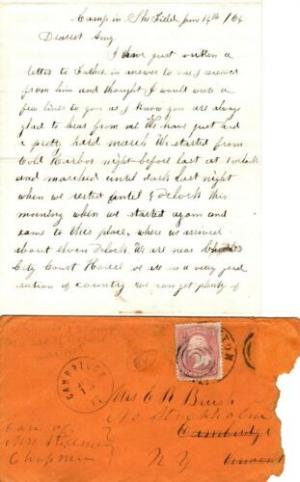 Camp in The Field June 14th / 64
Dearest Amy
I have just written a
letter to Father in answer to one I received
from him and thought I would write a
few lines to you as I know you are always
glad to hear from me. We have just had
a pretty hard march. We started from
Cold Harbor night before last at
and marched until dark last night
when we rested until 4 Oclock this
morning when we started again and
came to this place, where we arrived
about eleven Oclock We are near Charles
City Court House we are in a very good
section of country We can get plenty of
CAMBRIDGE
Mrs C N
No
Cambridge
N Y Vermont
Care of
Mrs
Chapman